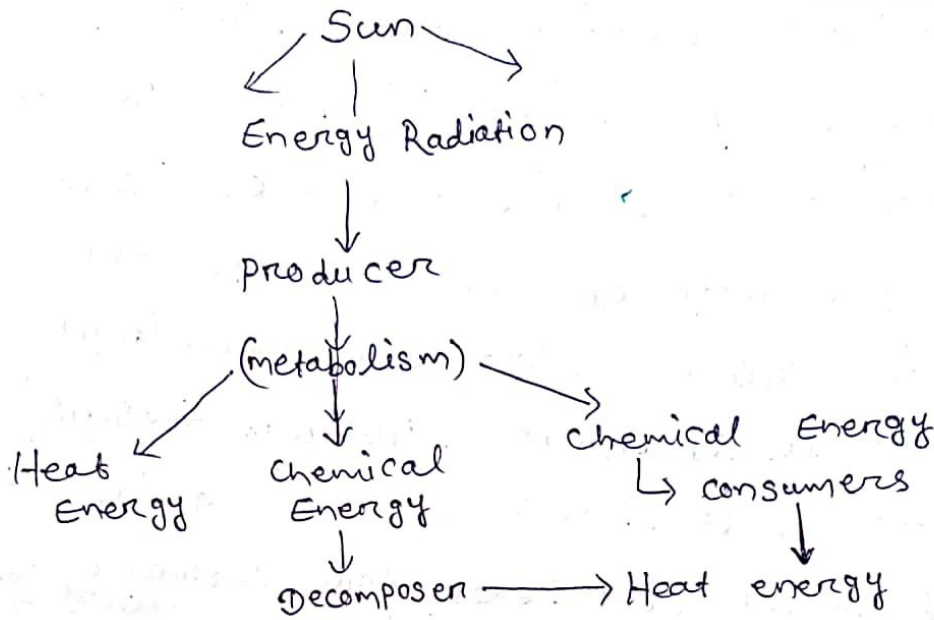 Sun
Energy Radiation
Producer
(metabolism)
Heat
Energy
Chemical
Energy
Chemical Energy
consumers
Decomposer
Heat energy